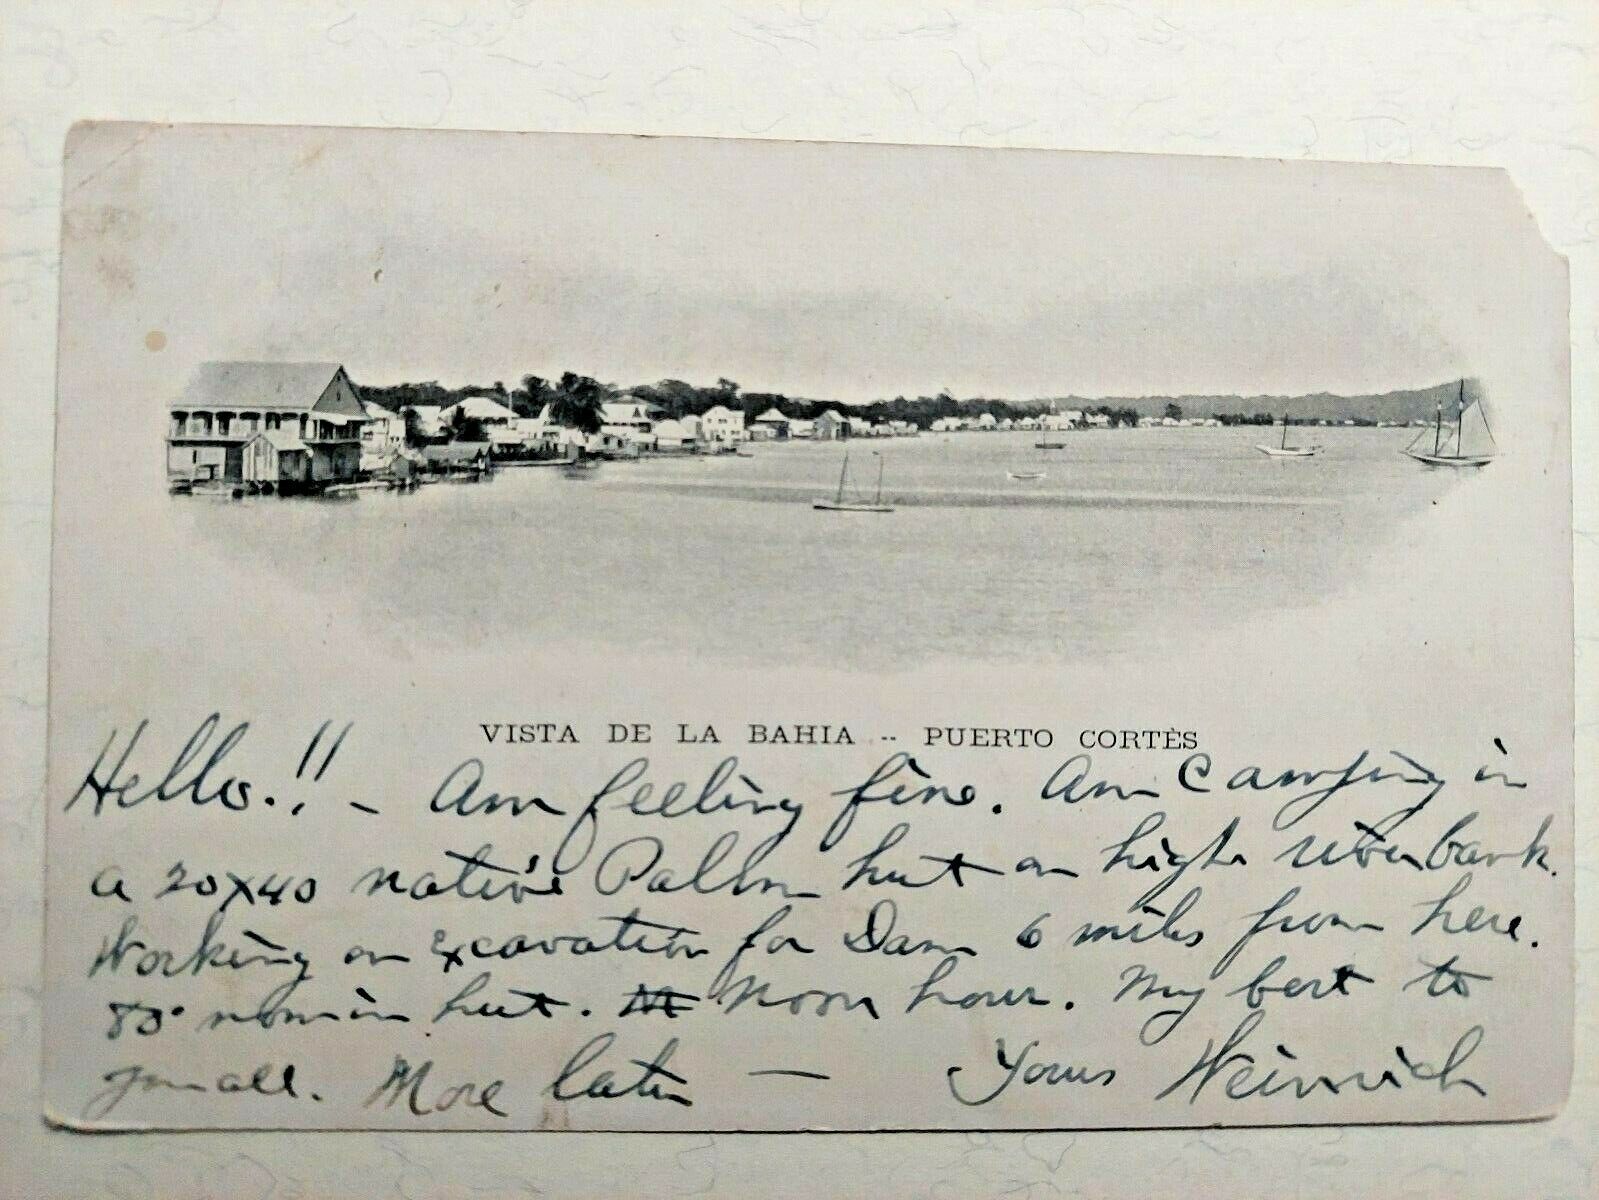 VISTA DE LA BAHIA -- PUERTO CORTÈS
Hello.!! - Am feeling fine. Am Camping in
a 20x40 native Palm hut on high river bank.
Working on excavation for Dam 6 miles from here.
80° now in hut. Noon hour. My best to
you all. More later — Yours Heinrich